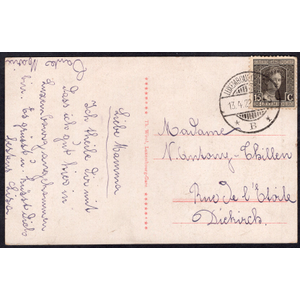 Liebe Mamma
Ich theile Dir mit
dass ich gut hier in
Luxemburg angekommen
Es grüsst u. küsst Dich
Danke
LUXEMBOURG
13.4.22
15 C
Madame
N. Antony-Thillen
Rue de l'Etoile
Diekirch